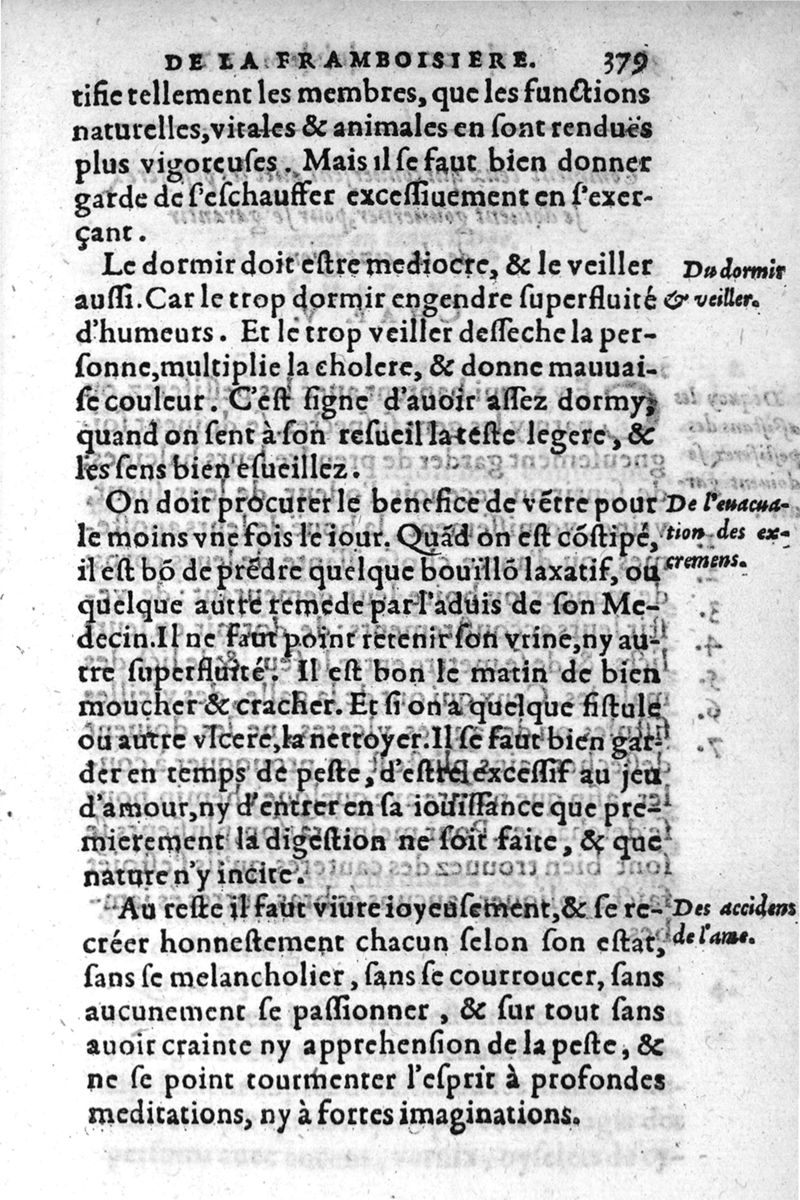 DE LA FRAMBOISIERE. 379
tifie tellement les membres, que les functions
naturelles, vitales & animales en sont renduës
plus vigoreuses. Mais il se faut bien donner
garde de s'eschauffer excessiuement en s'exer-
çant.
Le dormir doit estre mediocre, & le veiller
aussi. Car le trop dormir engendre superfluité
d'humeurs. Et le trop veiller desseche la per-
sonne, multiplie la cholere, & donne mauuai-
se couleur. C'est signe d'auoir assez dormy,
quand on sent à son resueil la teste legere, &
les sens bien esueillez.
Du dormir
& veiller.
On doit procurer le benefice de vẽtre pour
le moins vne fois le iour. Quãd on est cõstipé,
il est bõ de prẽdre quelque bouïllõ laxatif, ou
quelque autre remede par l'aduis de son Me-
decin. Il ne faut point retenir son vrine, ny au-
tre superfluité. Il est bon le matin de bien
moucher & cracher. Et si on a quelque fistule
ou autre vlcere, la nettoyer. Il se faut bien gar-
der en temps de peste, d'estre excessif au jeu
d'amour, ny d'entrer en sa iouïssance que pre-
mierement la digestion ne soit faite, & que
nature n'y incite.
De l'euacua-
tion des ex-
cremens.
Au reste il faut viure ioyeusement, & se re-
créer honnestement chacun selon son estat,
sans se melancholier, sans se courroucer, sans
aucunement se passionner, & sur tout sans
auoir crainte ny apprehension de la peste, &
ne se point tourmenter l'esprit à profondes
meditations, ny à fortes imaginations.
Des accidens
de l'ame.